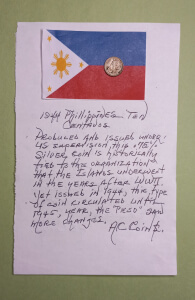 1944 Phillippines Ten
Centavos
Produced and issued under
US supervision, this .75%
silver coin is historically
tied to the organization
that the islands underwent
in the years after WWII.
Yet issued in 1944, this type
of coin circulated until
1945, year, the "Peso" saw
more changes.
AC Coins.